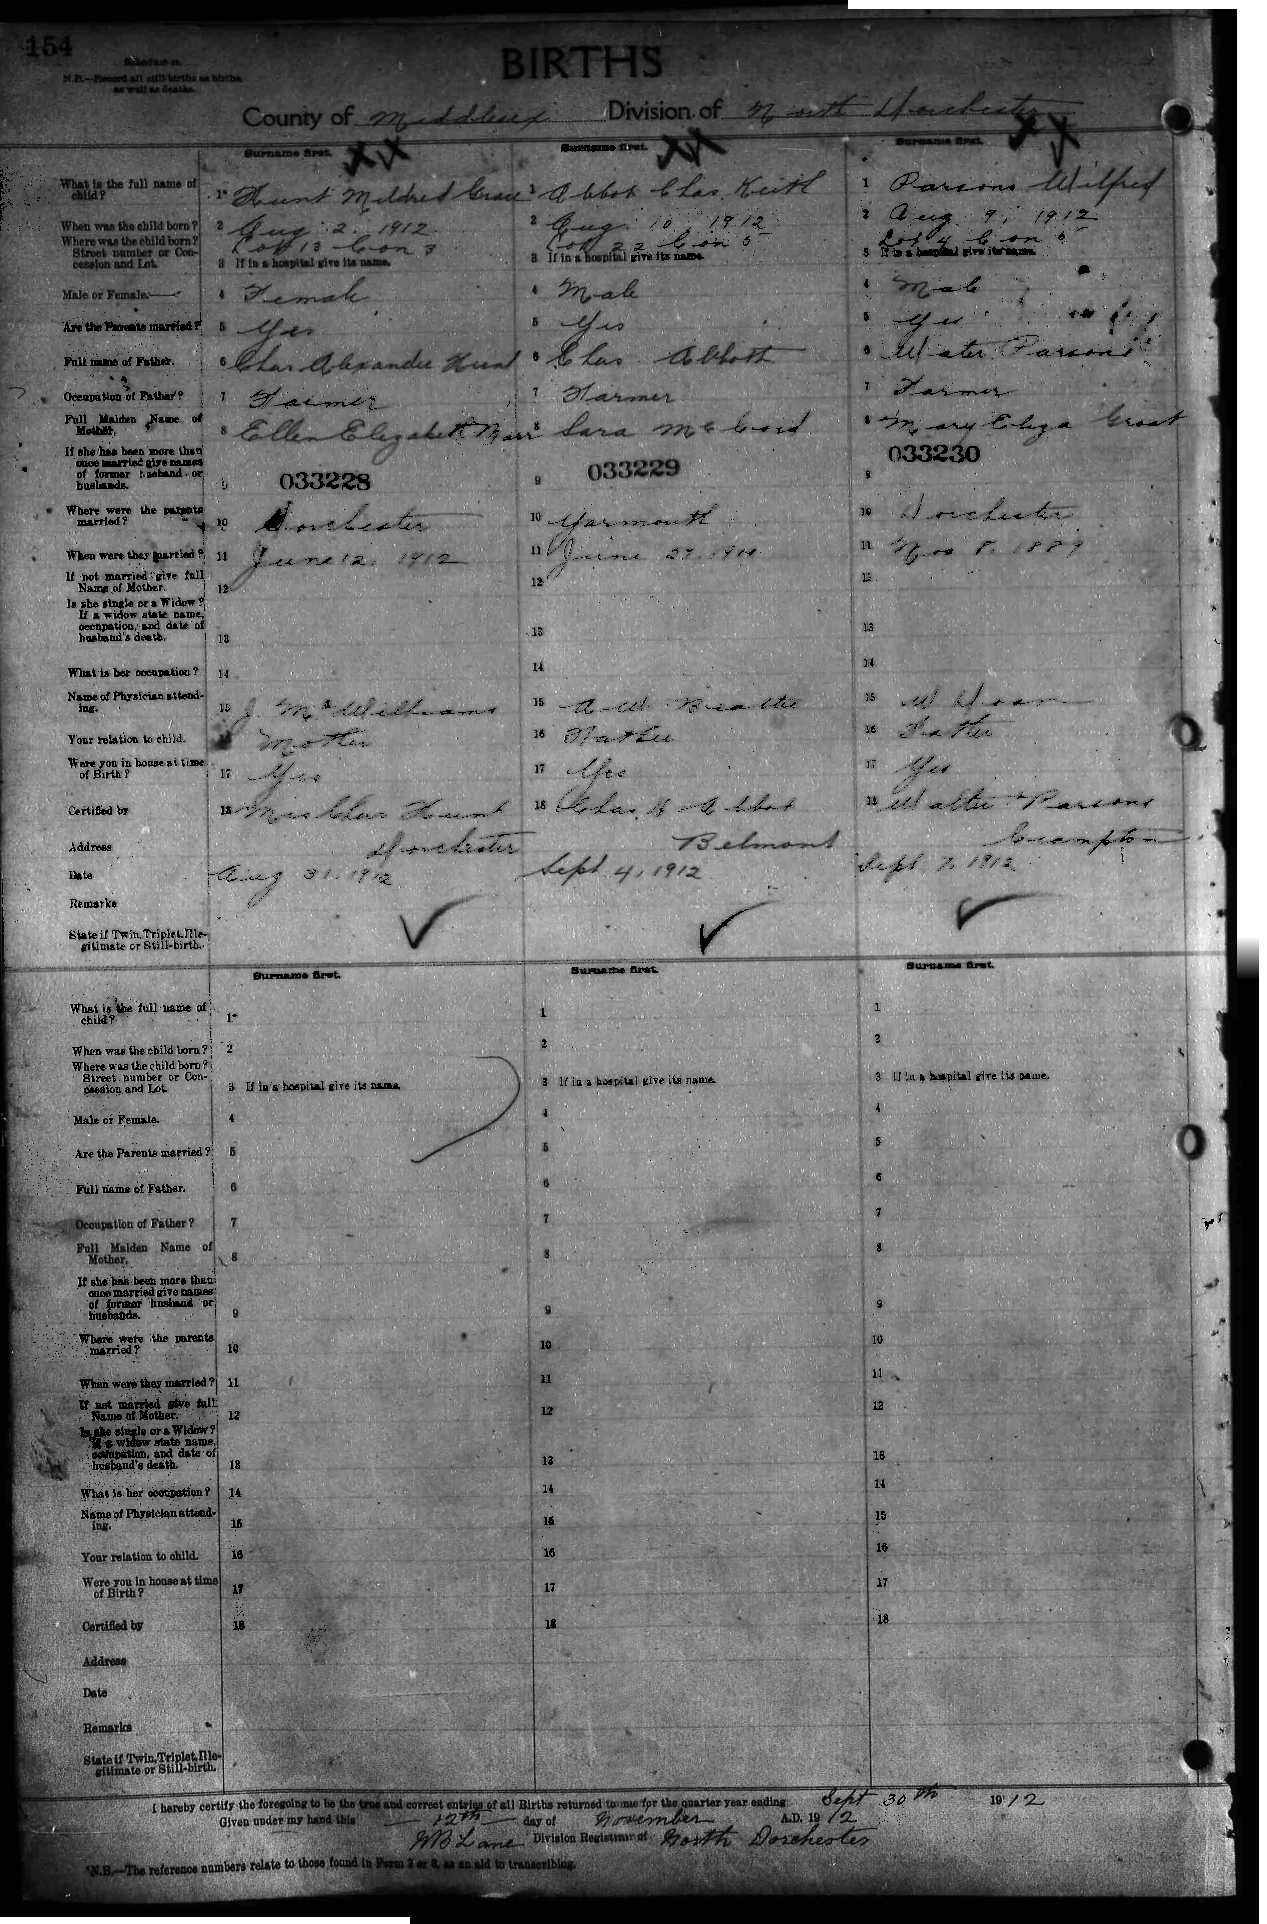 154
Schedule A.
N.B.—Record all still births as births
as well as deaths.
BIRTHS
County of Middlesex Division of North Dorchester
Surname first. Surname first. Surname first.
What is the full name of child? 1* Hunt Mildred Grace 1 Abbot Chas Keith 1 Parsons Wilfred
When was the child born? 2 Aug 2. 1912 2 Aug 10, 1912 2 Aug 9, 1912
Where was the child born? Street number or Concession and Lot. Lot 13 Con 3 Lot 22 Con 5 Lot 4 Con 5
3 If in a hospital give its name. 3 If in a hospital give its name. 3 If in a hospital give its name.
Male or Female. 4 Female 4 Male 4 Male
Are the Parents married? 5 Yes 5 Yes 5 Yes
Full name of Father. 6 Chas Alexander Hunt 6 Chas Abbott 6 Water Parsons
Occupation of Father? 7 Farmer 7 Farmer 7 Farmer
Full Maiden Name of Mother. 8 Ellen Elizabeth Marr 8 Sara McCord 8 Mary Eliza Groat
033228 033229 033230
If she has been more than once married give names of former husband or husbands. 9 9 9
Where were the parents married? 10 Dorchester 10 Yarmouth 10 Dorchester
When were they married? 11 June 12. 1912 11 June 29. 1911 11 Nov 8. 1889
If not married give full Name of Mother. 12 12 12
Is she single or a Widow? If a widow state name, occupation, and date of husband's death. 13 13 13
What is her occupation? 14 14 14
Name of Physician attending. 15 J. McWilliams 15 A W Beattie 15 W Doan
Your relation to child. Mother 16 Father 16 Father
Were you in house at time of Birth? 17 Yes 17 Yes 17 Yes
Certified by 18 Mrs Chas Hunt 18 Chas. H Abbot 18 Walter Parsons
Address Dorchester Belmont Crampton
Date Aug 31. 1912 Sept 4. 1912 Sept 7. 1912
Remarks
State if Twin, Triplet, Illegitimate or Still-birth.
Surname first. Surname first. Surname first.
What is the full name of child? 1* 1 1
When was the child born? 2 2 2
Where was the child born? Street number or Concession and Lot. 3 If in a hospital give its name. 3 If in a hospital give its name. 3 If in a hospital give its name.
Male or Female. 4 4 4
Are the Parents married? 5 5 5
Full name of Father. 6 6 6
Occupation of Father? 7 7 7
Full Maiden Name of Mother. 8 8 8
If she has been more than once married give names of former husband or husbands. 9 9 9
Where were the parents married? 10 10 10
When were they married? 11 11 11
If not married give full Name of Mother. 12 12 12
Is she single or a Widow? If a widow state name, occupation, and date of husband's death. 13 13 13
What is her occupation? 14 14 14
Name of Physician attending. 15 15 15
Your relation to child. 16 16 16
Were you in house at time of Birth? 17 17 17
Certified by 18 18 18
Address
Date
Remarks
State if Twin, Triplet, Illegitimate or Still-birth.
I hereby certify the foregoing to be the true and correct entries of all Births returned to me for the quarter year ending Sept 30th 1912
Given under my hand this 12th day of November A.D. 1912
WB Lane Division Registrar of North Dorchester
*N.B.—The reference numbers relate to those found in Form 2 or 3, as an aid to transcribing.